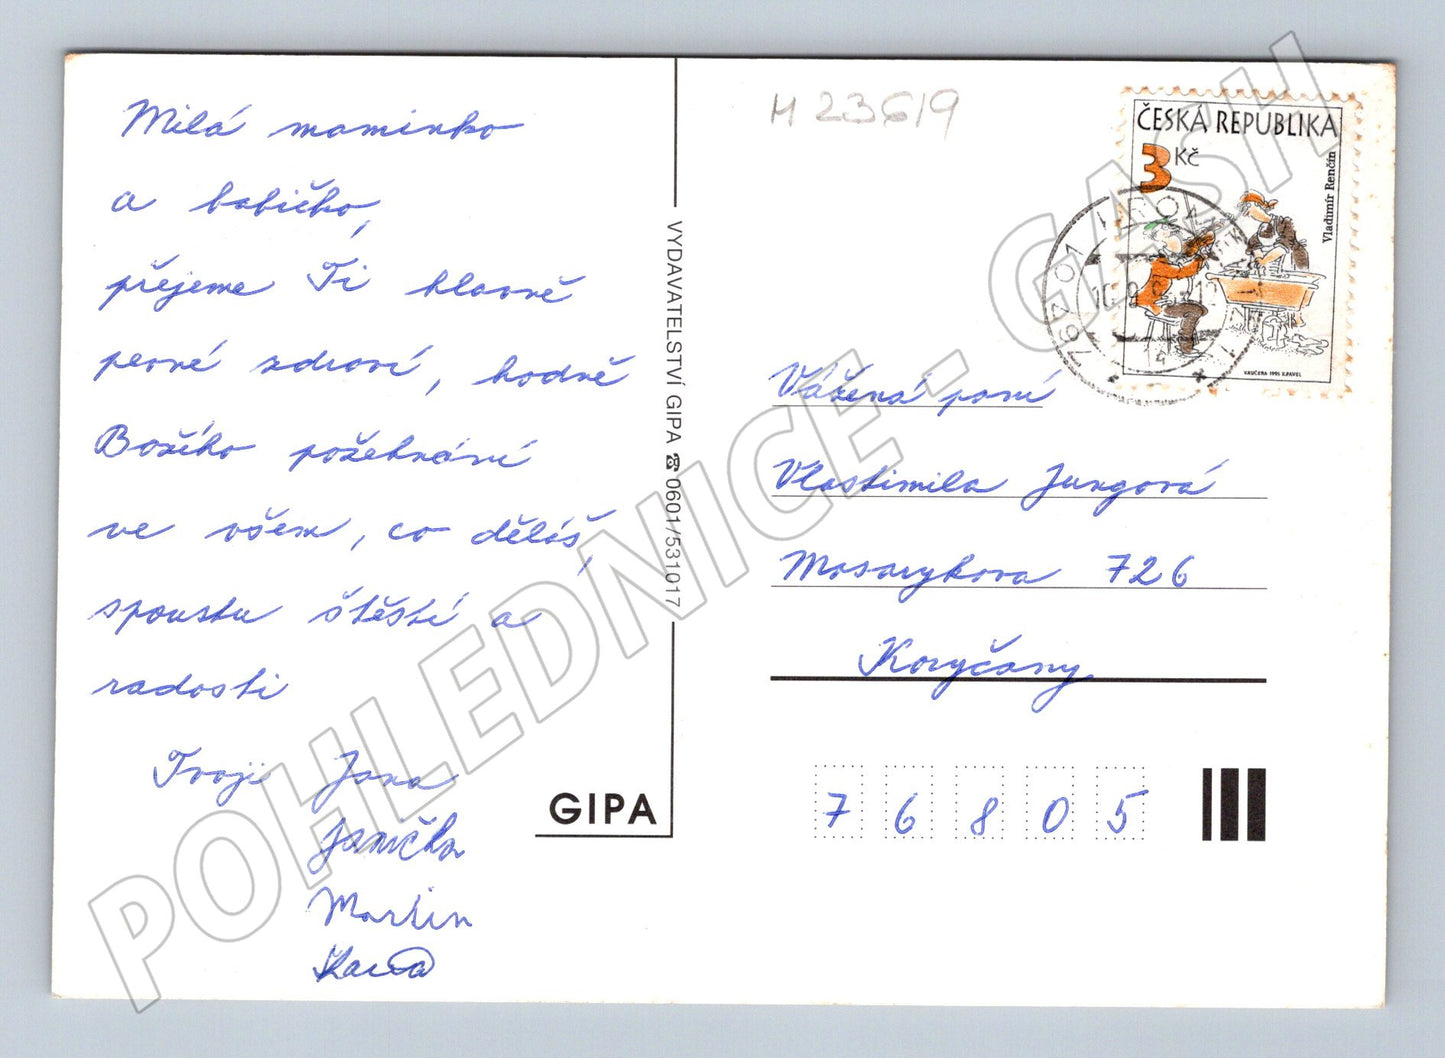 Milá maminko
a babičko,
přejeme Ti hlavně
pevné zdraví, hodně
Božího požehnání
ve všem, co děláš,
spoustu štěstí a
radosti
Tvoji Jana
Janička
Martin
GIPA
VYDAVATELSTVÍ GIPA ☎ 0601/531017
H 23619
ČESKÁ REPUBLIKA
3 Kč
Vladimír Renčín
KUČERA 1995 V.PAVEL
697 01
Vážená paní
Vlastimila Jungová
Masarykova 726
Koryčany
76805
POHLEDNICE - GASH